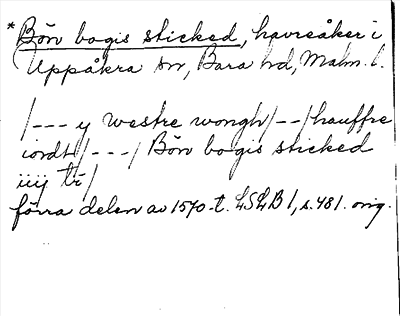 *Bön bogis sticked, havreåker i
Uppåkra sn, Bara hd, Malm. l.
/--- y westre wongh/--/hauffre
iordt/---/ Bön bogis sticked
iiij tr/
förra delen av 1570-t. LSLB 1, s. 481. orig.